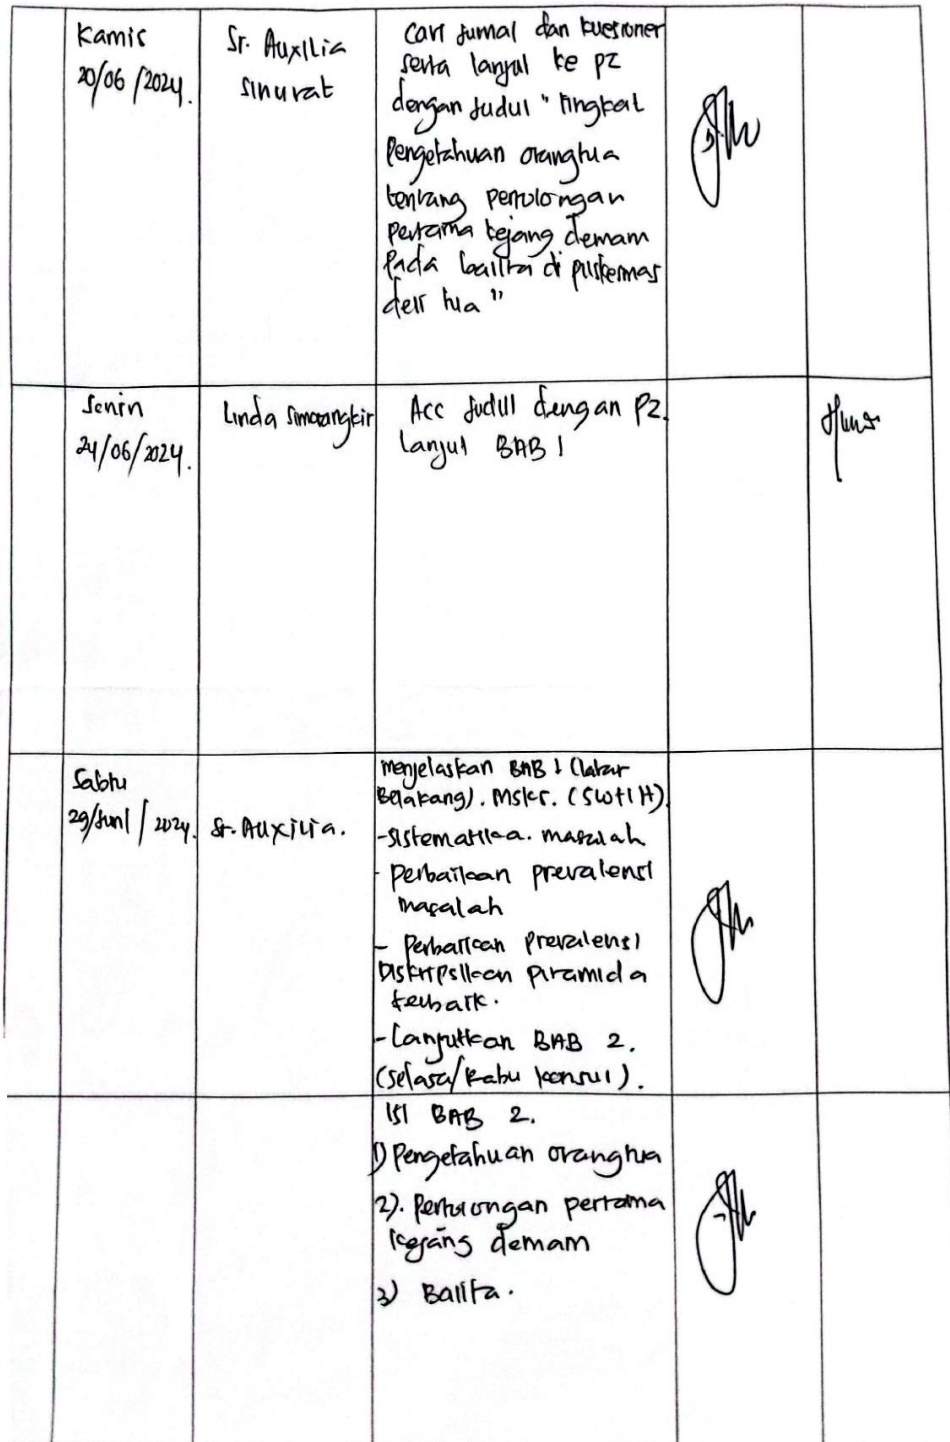 Kamis
20/06/2024.
Sr. Auxilia
Sinurat
Cari Jurnal dan kuesioner
serta lanjut ke P2
dengan Judul "Tingkat
Pengetahuan orangtua
tentang pertolongan
pertama kejang demam
Pada balita di puskermas
deli tua"
Senin
24/06/2024.
Linda Simorangkir
Acc Judul dengan P2.
Lanjut BAB 1
Sabtu
29/Juni/2024.
Sr. Auxilia.
menjelaskan BAB 1 (latar
Belakang). Mskr. (SW+1H)
-Sistematika. masalah
- Perbaikan prevalensi
masalah
- Perbaikan Prevalensi
Diskripsikan piramida
terbaik.
- Lanjutkan BAB 2.
(Selasa/Rabu konsul).
ISI BAB 2.
1) Pengetahuan orangtua
2). Pertolongan pertama
kejang demam
3) Balita.